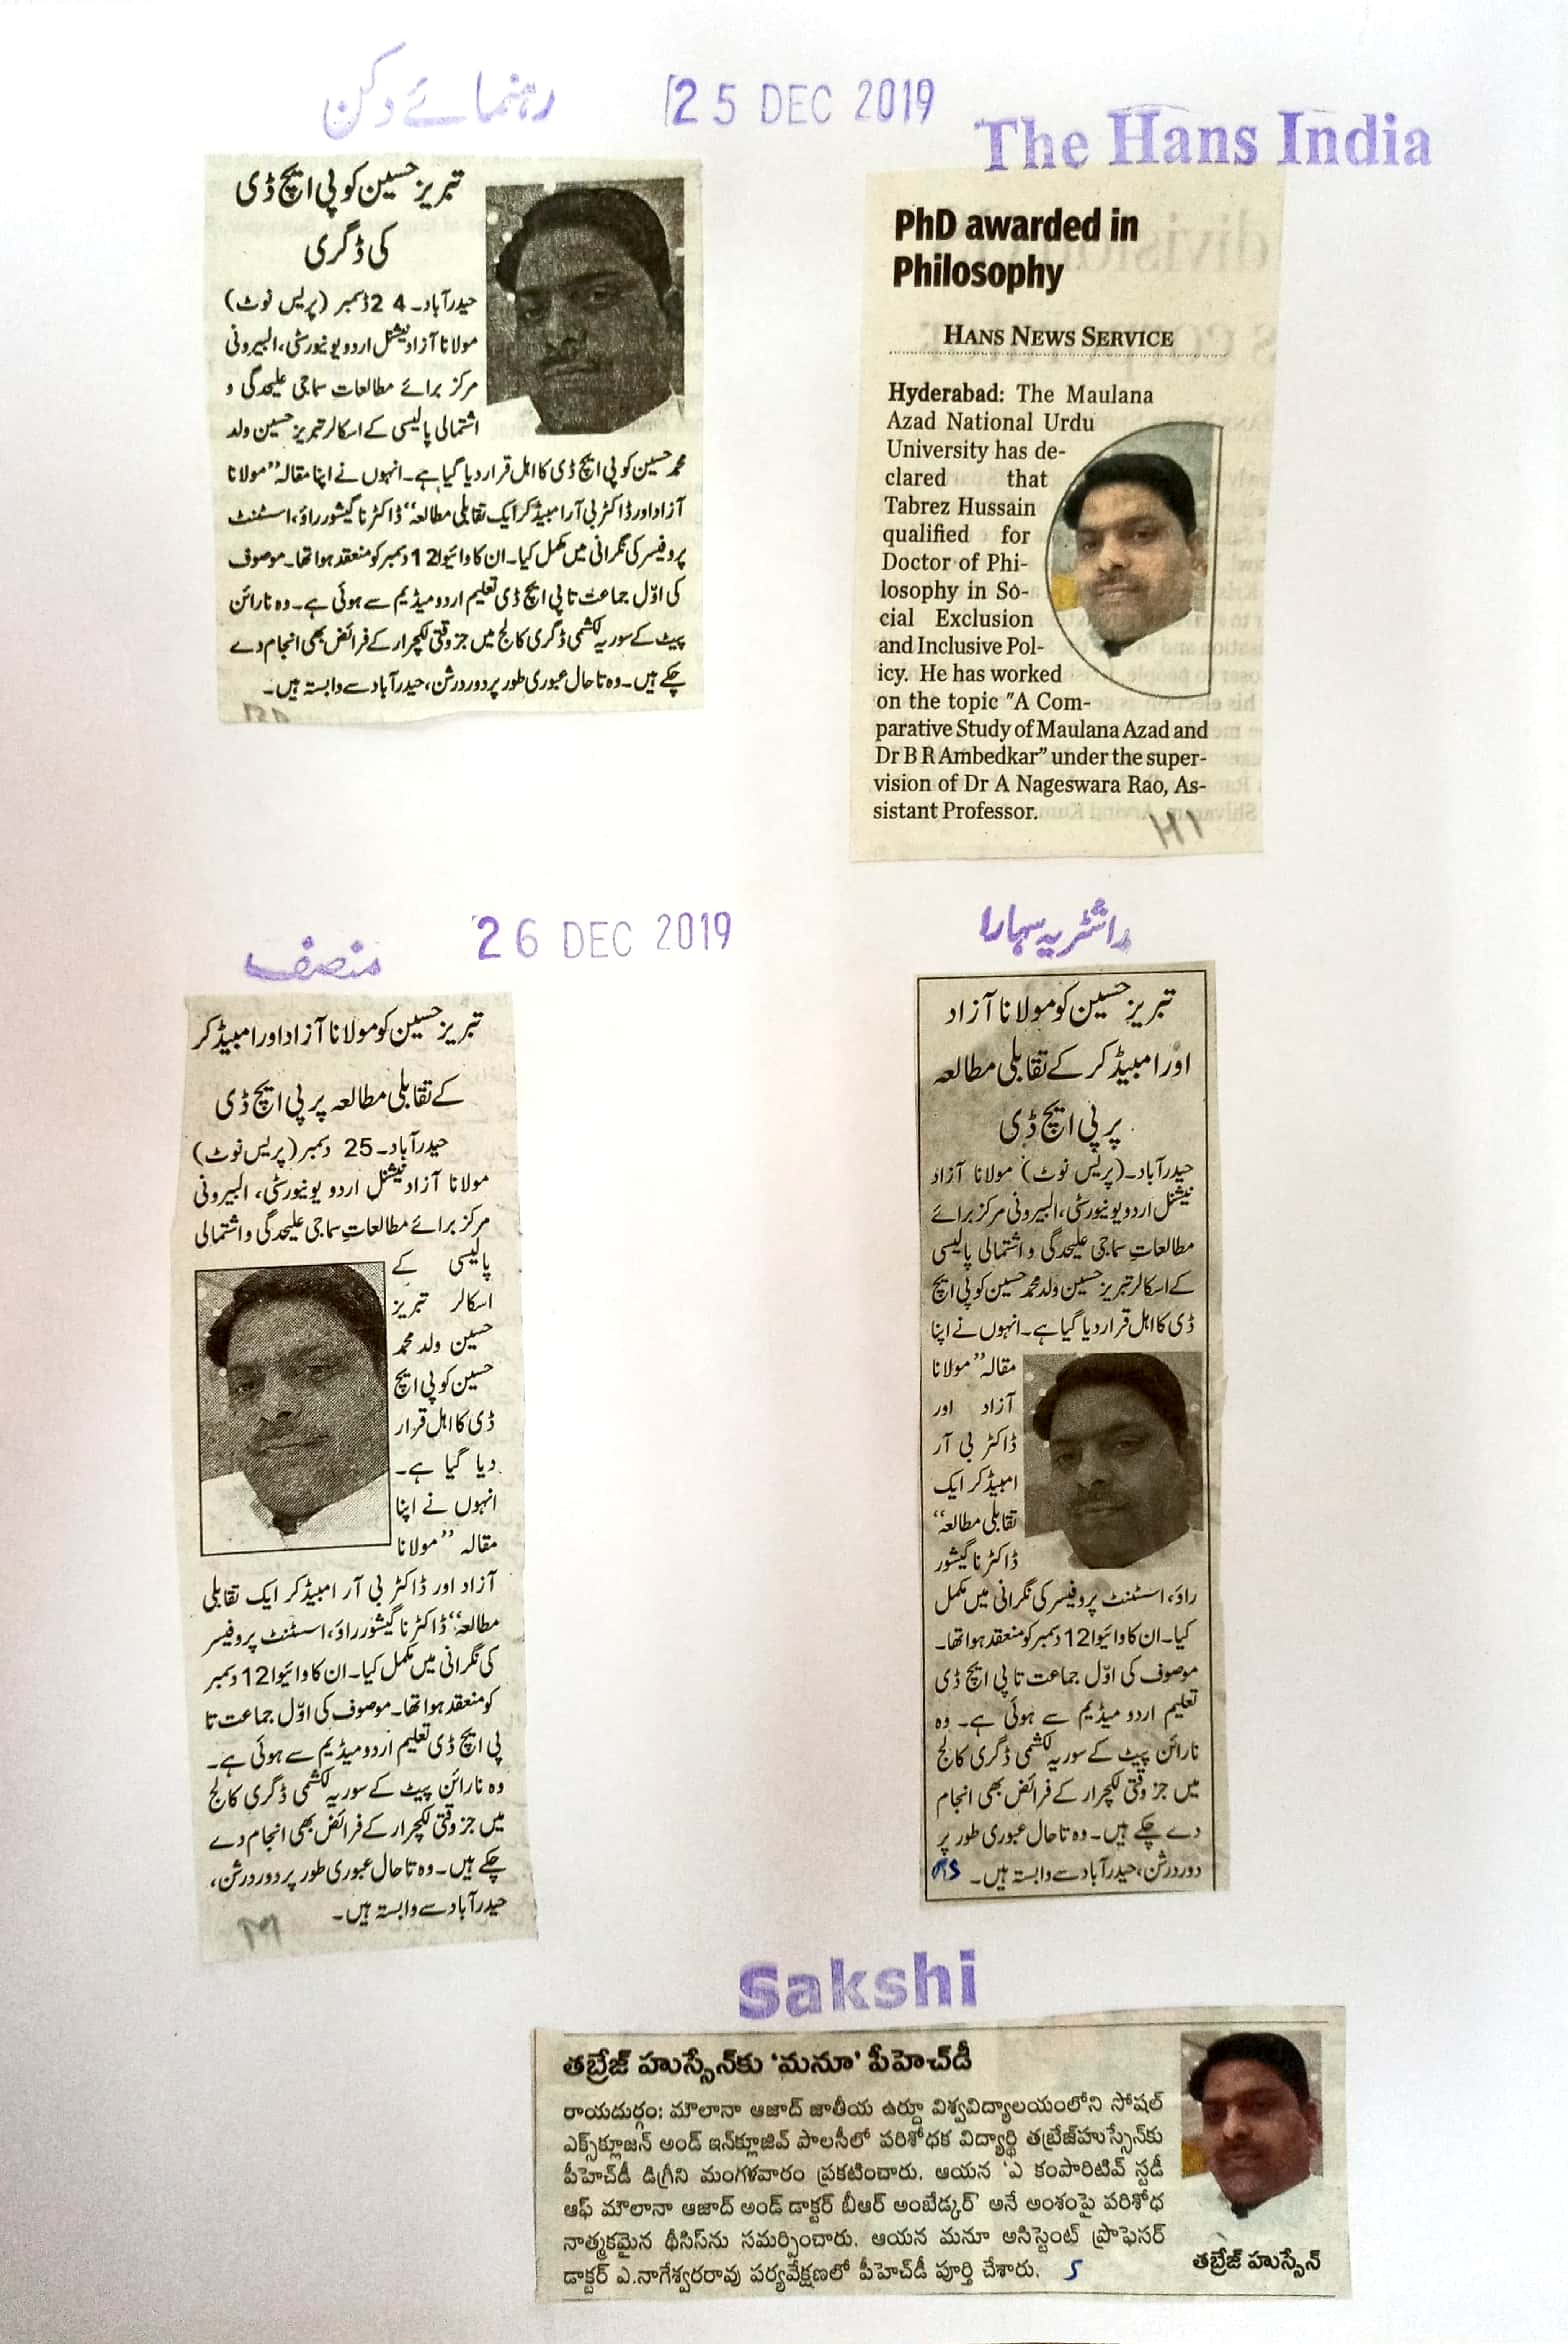 رہنمائے دکن
25 DEC 2019
The Hans India
تبریز حسین کو پی ایچ ڈی
کی ڈگری
حیدرآباد۔ 24 ڈسمبر (پریس نوٹ)
مولانا آزاد نیشنل اردو یونیورسٹی، البیرونی
مرکز برائے مطالعات سماجی علیحدگی و
اشتمالی پالیسی کے اسکالر تبریز حسین ولد
محمد حسین کو پی ایچ ڈی کا اہل قرار دیا گیا ہے۔ انہوں نے اپنا مقالہ ”مولانا
آزاد اور ڈاکٹر بی آر امبیڈکر ایک تقابلی مطالعہ“ ڈاکٹر ناگیشور راؤ، اسسٹنٹ
پروفیسر کی نگرانی میں مکمل کیا۔ ان کا وائیوا 12 دسمبر کو منعقد ہوا تھا۔ موصوف
کی اوّل جماعت تا پی ایچ ڈی تعلیم اردو میڈیم سے ہوئی ہے۔ وہ نارائن
پیٹ کے سوریہ لکشمی ڈگری کالج میں جز وقتی لکچرار کے فرائض بھی انجام دے
چکے ہیں۔ وہ تا حال عبوری طور پر دوردرشن، حیدرآباد سے وابستہ ہیں۔
PhD awarded in
Philosophy
HANS NEWS SERVICE
Hyderabad: The Maulana
Azad National Urdu
University has de-
clared that
Tabrez Hussain
qualified for
Doctor of Phi-
losophy in So-
cial Exclusion
and Inclusive Pol-
icy. He has worked
on the topic "A Com-
parative Study of Maulana Azad and
Dr B R Ambedkar” under the super-
vision of Dr A Nageswara Rao, As-
sistant Professor.
HI
منصف
26 DEC 2019
راشٹریہ سہارا
تبریز حسین کو مولانا آزاد اور امبیڈکر
کے تقابلی مطالعہ پر پی ایچ ڈی
حیدرآباد۔ 25 دسمبر (پریس نوٹ)
مولانا آزاد نیشنل اردو یونیورسٹی، البیرونی
مرکز برائے مطالعاتِ سماجی علیحدگی و اشتمالی
پالیسی کے
اسکالر تبریز
حسین ولد محمد
حسین کو پی ایچ
ڈی کا اہل قرار
دیا گیا ہے۔
انہوں نے اپنا
مقالہ ”مولانا
آزاد اور ڈاکٹر بی آر امبیڈکر ایک تقابلی
مطالعہ“ ڈاکٹر ناگیشور راؤ، اسسٹنٹ پروفیسر
کی نگرانی میں مکمل کیا۔ ان کا وائیوا 12 دسمبر
کو منعقد ہوا تھا۔ موصوف کی اوّل جماعت تا
پی ایچ ڈی تعلیم اردو میڈیم سے ہوئی ہے۔
وہ نارائن پیٹ کے سوریہ لکشمی ڈگری کالج
میں جز وقتی لکچرار کے فرائض بھی انجام دے
چکے ہیں۔ وہ تا حال عبوری طور پر دوردرشن،
حیدرآباد سے وابستہ ہیں۔
M
تبریز حسین کو مولانا آزاد
اور امبیڈکر کے تقابلی مطالعہ
پر پی ایچ ڈی
حیدرآباد۔ (پریس نوٹ) مولانا آزاد
نیشنل اردو یونیورسٹی، البیرونی مرکز برائے
مطالعاتِ سماجی علیحدگی و اشتمالی پالیسی
کے اسکالر تبریز حسین ولد محمد حسین کو پی ایچ
ڈی کا اہل قرار دیا گیا ہے۔ انہوں نے اپنا
مقالہ ”مولانا
آزاد اور
ڈاکٹر بی آر
امبیڈکر ایک
تقابلی مطالعہ“
ڈاکٹر ناگیشور
راؤ، اسسٹنٹ پروفیسر کی نگرانی میں مکمل
کیا۔ ان کا وائیوا 12 دسمبر کو منعقد ہوا تھا۔
موصوف کی اوّل جماعت تا پی ایچ ڈی
تعلیم اردو میڈیم سے ہوئی ہے۔ وہ
نارائن پیٹ کے سوریہ لکشمی ڈگری کالج
میں جز وقتی لکچرار کے فرائض بھی انجام
دے چکے ہیں۔ وہ تا حال عبوری طور پر
دوردرشن، حیدرآباد سے وابستہ ہیں۔ RS
Sakshi
తబ్రేజ్ హుస్సేన్‌కు ‘మనూ’ పీహెచ్‌డీ
రాయదుర్గం: మౌలానా ఆజాద్ జాతీయ ఉర్దూ విశ్వవిద్యాలయంలోని సోషల్
ఎక్స్‌క్లూజన్ అండ్ ఇన్‌క్లూజివ్ పాలసీలో పరిశోధక విద్యార్థి తబ్రేజ్‌హుస్సేన్‌కు
పీహెచ్‌డీ డిగ్రీని మంగళవారం ప్రకటించారు. ఆయన ‘ఎ కంపారిటివ్ స్టడీ
ఆఫ్ మౌలానా ఆజాద్ అండ్ డాక్టర్ బీఆర్ అంబేడ్కర్’ అనే అంశంపై పరిశోధ
నాత్మకమైన థీసిస్‌ను సమర్పించారు. ఆయన మనూ అసిస్టెంట్ ప్రొఫెసర్
డాక్టర్ ఎ.నాగేశ్వరరావు పర్యవేక్షణలో పీహెచ్‌డీ పూర్తి చేశారు. S
తబ్రేజ్ హుస్సేన్